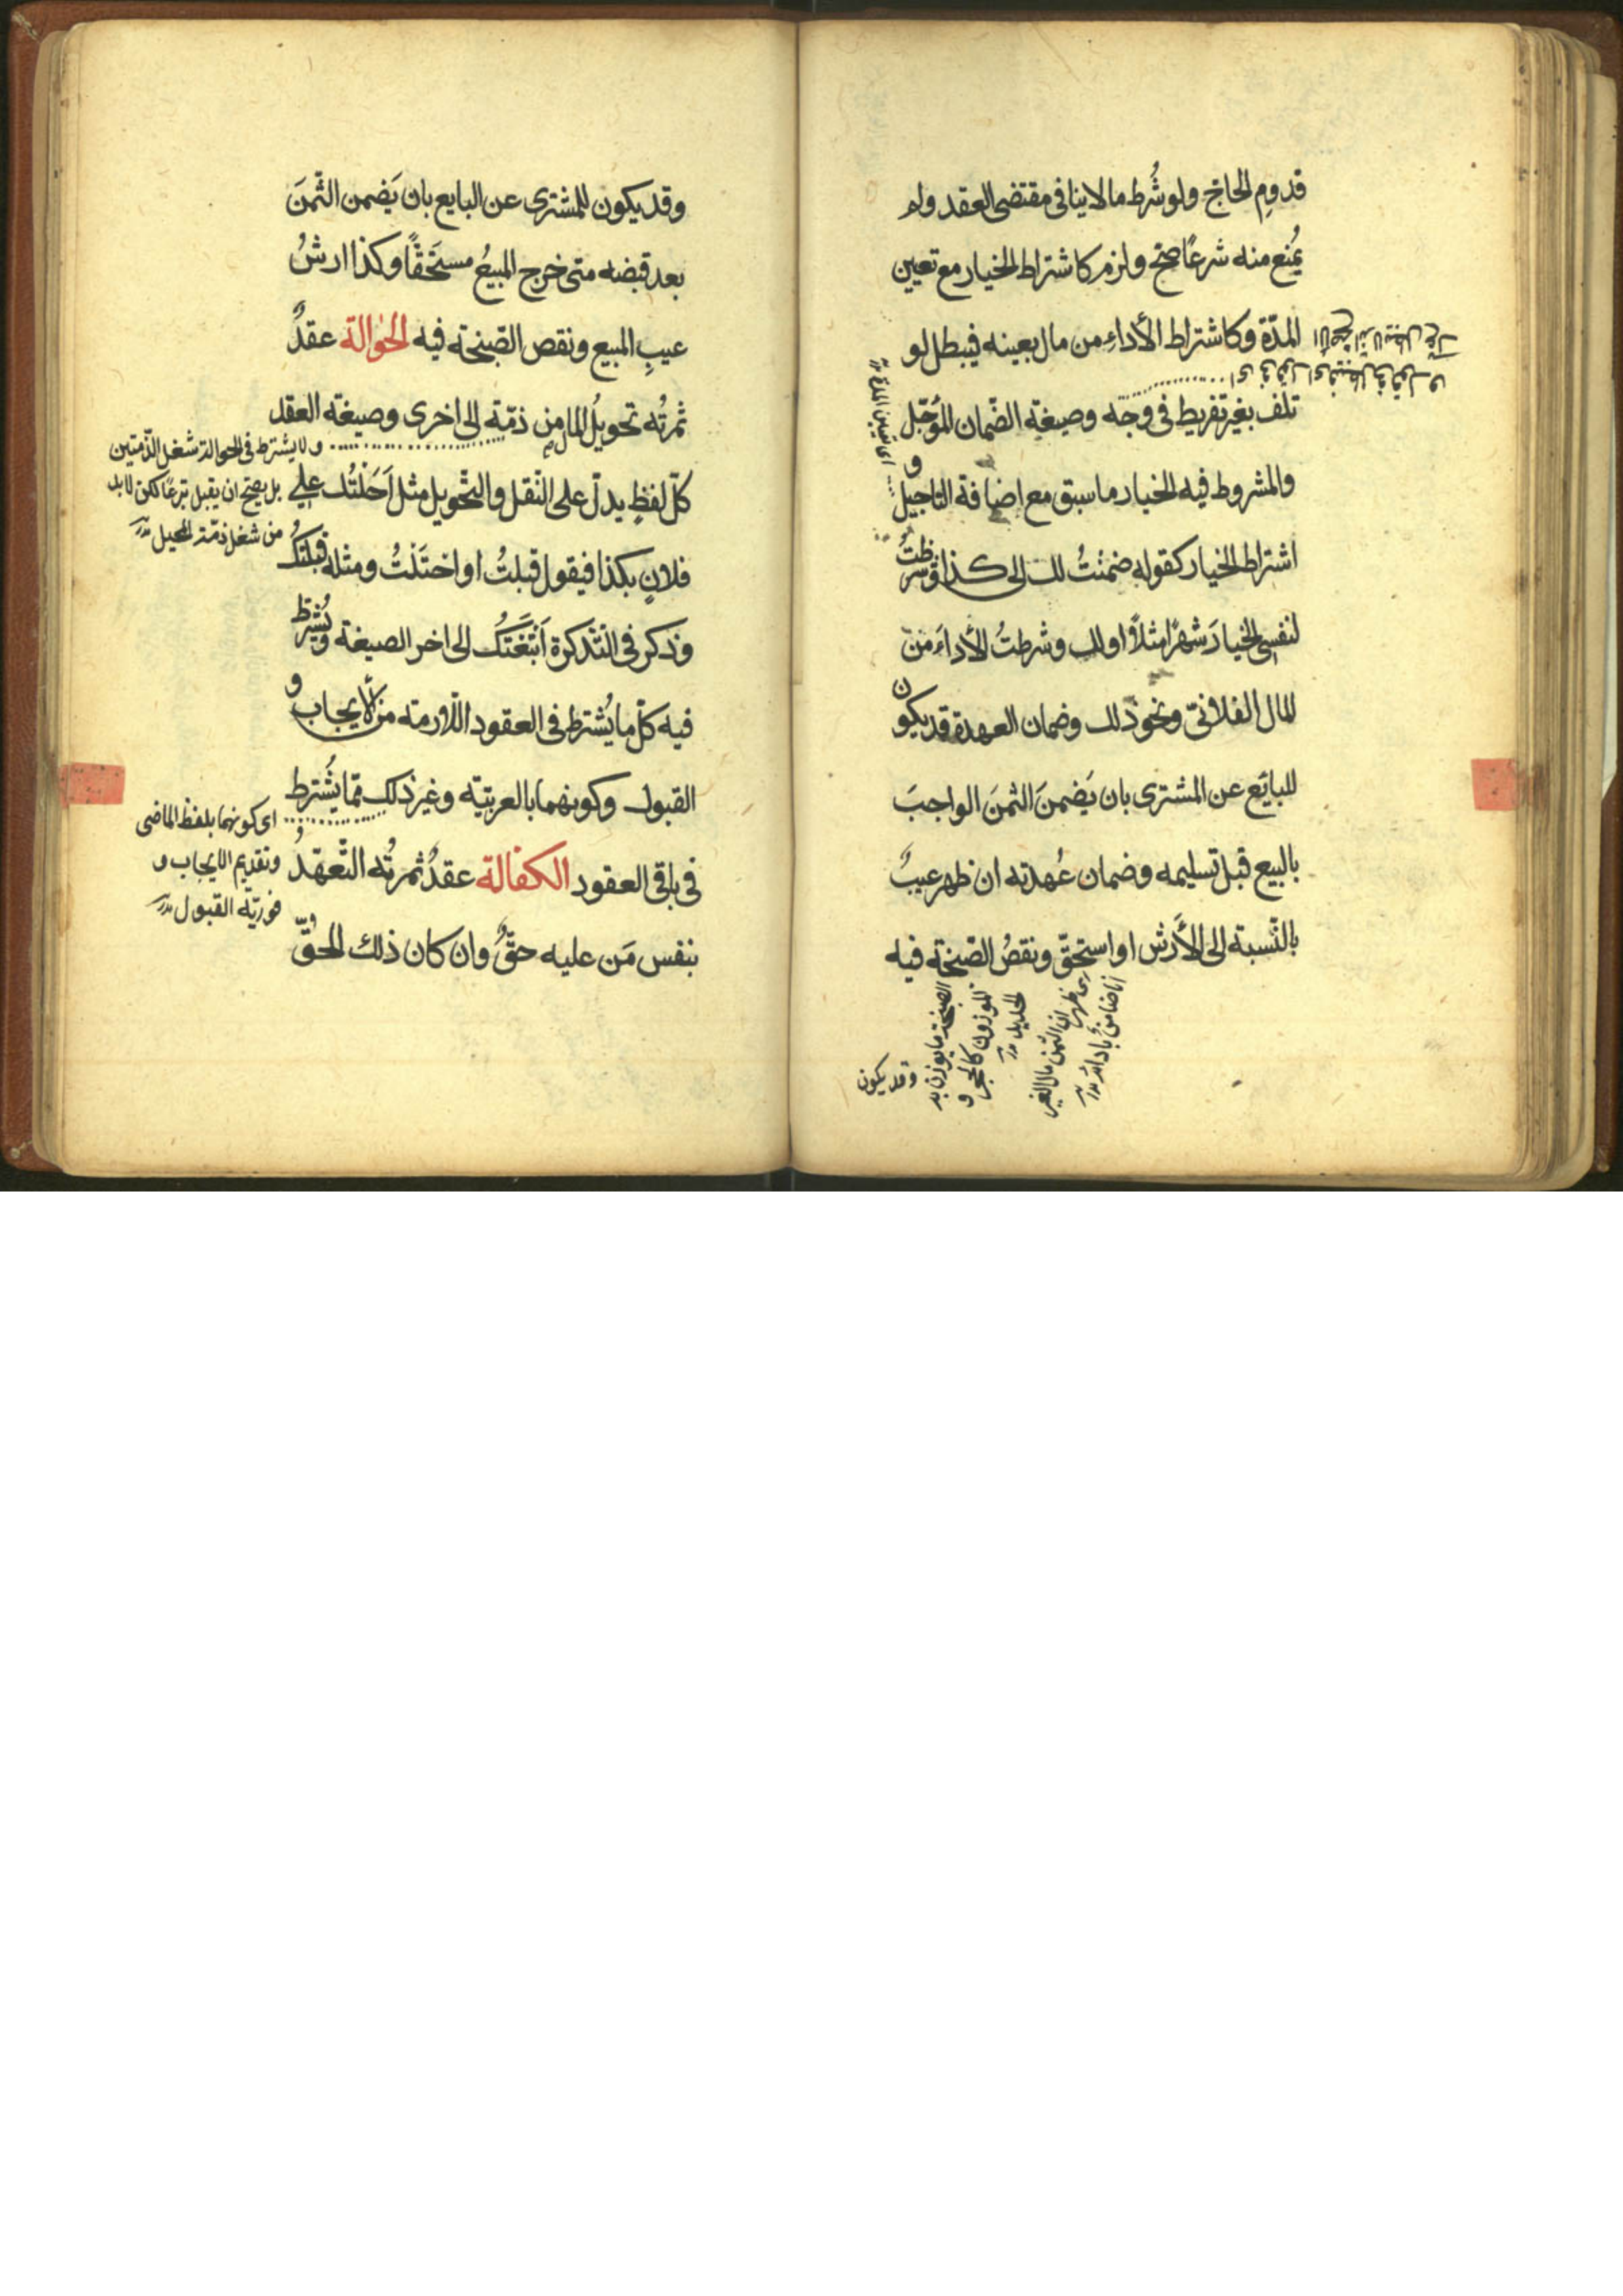 قدومِ الحاجّ ولو شُرط ما لا ينافى مقتضى العقد ولم
يُمنع منه شرعًا صحّ ولزم كاشتراط الخيار مع تعيين
المدّة وكاشتراط الأداءِ من مال بعينه فيبطل لو
تلف بغير تفريط فى وجه وصيغة الضّمان المؤجّل
والمشروط فيه الخيار ما سبق مع اضافة التاجيل و
اشتراط الخيار كقوله ضمنتُ لك الى كذا وشرطتُ
لنفسى الخيارَ شهرًا مثلاً او لك وشرطتُ الأداءَ من
المال الفلانىّ ونحو ذلك وضمان العهدة قد يكون
للبايَع عن المشترى بان يَضمنَ الثمنَ الواجبَ
بالبيع قبل تسليمه وضمان عُهدته ان ظهر عيبٌ
بالنّسبة الى الأرش او استحقّ ونقصُ الصّنجة فيه
اى تعيين المدة
الصنجة ما يوزن به
الموزون كالحجر و
الحديد
ان الثمن مال الغير
انا ضامن بادائه
وقد يكون
وقد يكون للمشترى عن البايع بان يَضمن الثّمنَ
بعد قبضه متى خرج المبيعُ مستَحَقًّا وكذا ارشُ
عيبِ المبيع ونقص الصّنجة فيه الحوالة عقدٌ
ثمرتُه تحويلُ المال من ذمّة الى اخرى وصيغة العقد
كلّ لفظٍ يدلّ على النّقل والتّحويل مثل اَحَلْتُك على
فلانٍ بكذا فيقول قبلتُ او احتَلْتُ ومثله قبلتكُ
وذكر فى التّذكرة اَتْبَعْتُكَ الى اخر الصيغة ويُشترط
فيه كلّ ما يُشترط فى العقود اللّازمة من الأيجاب و
القبول وكونهما بالعربيّة وغير ذلك ممّا يُشترط
فى باقى العقود الكفالة عقدٌ ثمرتُه التّعهّدُ
بنفس مَن عليه حقٌّ وان كان ذلك الحقُّ
ولا يشترط فى الحوالة شغل الذّمتين
بل يصحّ ان يقبل تبرعًا لكن لا بد
من شغل ذمّة المحيل
اى كونهما بلفظ الماضى
وتقديم الايجاب و
فوريّة القبول